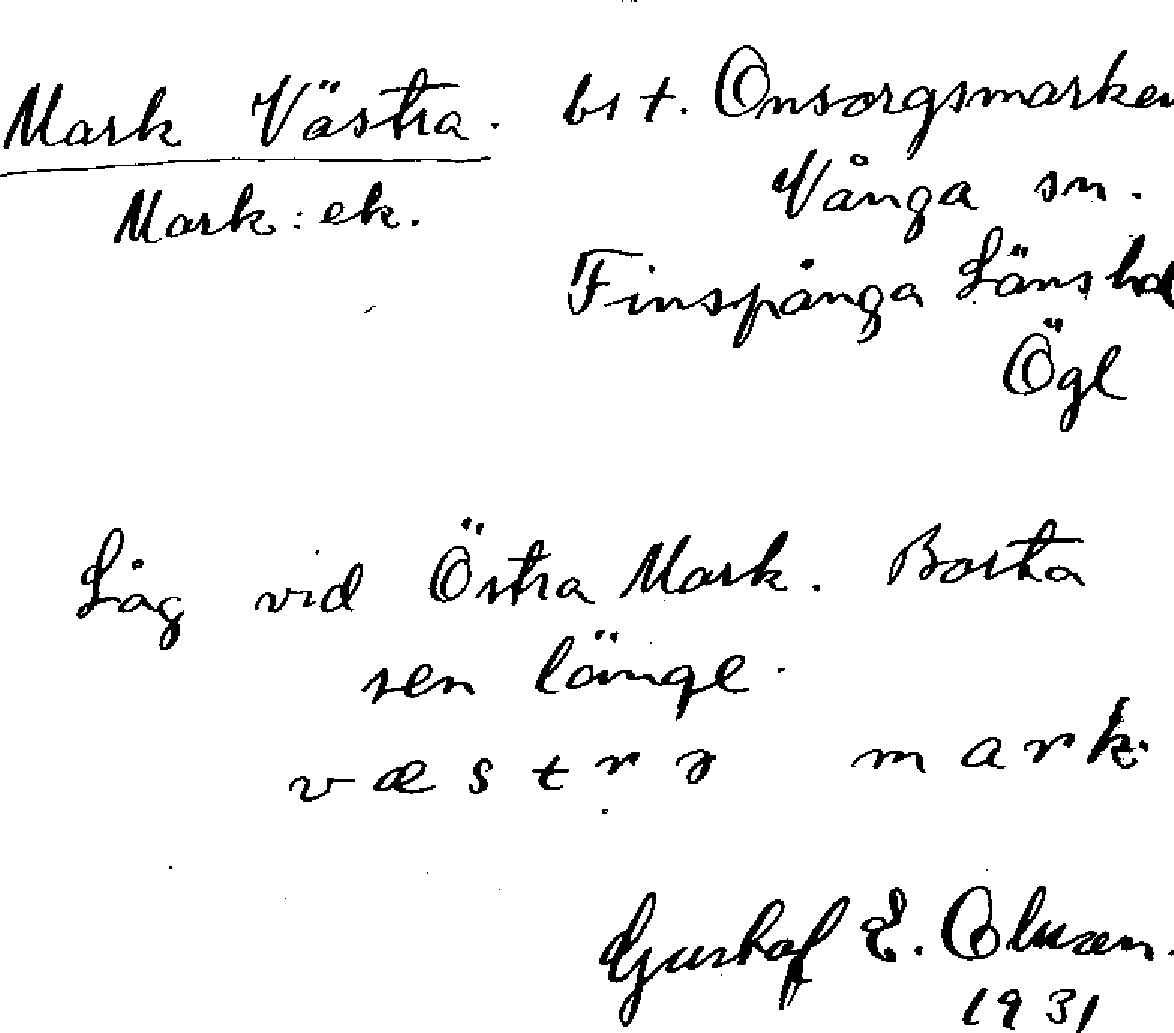 Mark Västra. bst. Onsorgsmarken
Mark: ek. Vånga sn.
Finspånga Länshd
Ögl
Låg vid Östra Mark. Borta
sen länge.
v æ s t r a m a r k.
Gustaf E. Olsson.
1931